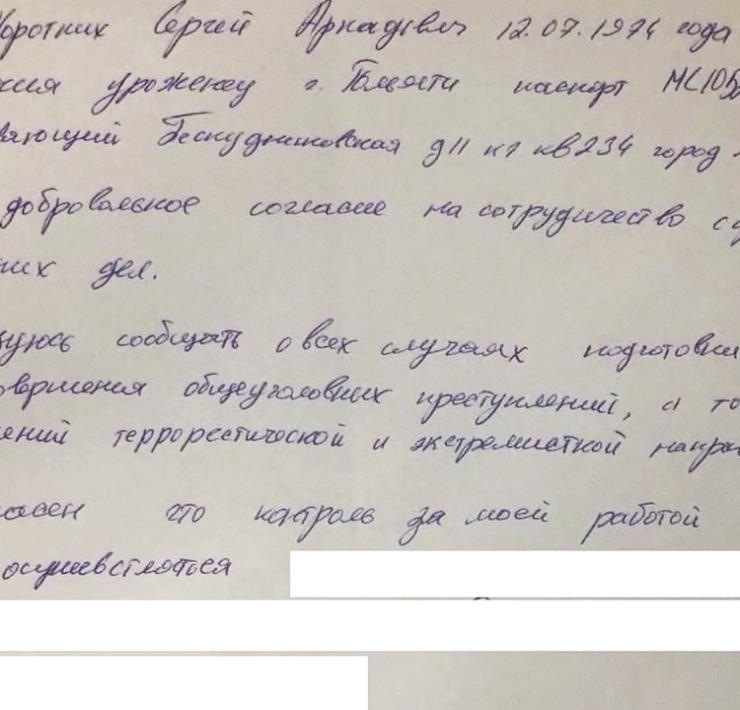 Коротких Сергей Аркадьевич 12.07.1974 года
уроженец г. Тольятти паспорт МС105
Бескудниковская д11 к1 кв234 город
добровольное согласие на сотрудничество с
них дел.
уюсь сообщать о всех случаях подготовки
овершения общеуголовных преступлений, а то
ений террорестической и экстремисткой напра
ласен что контроль за моей работой
осушевстляться